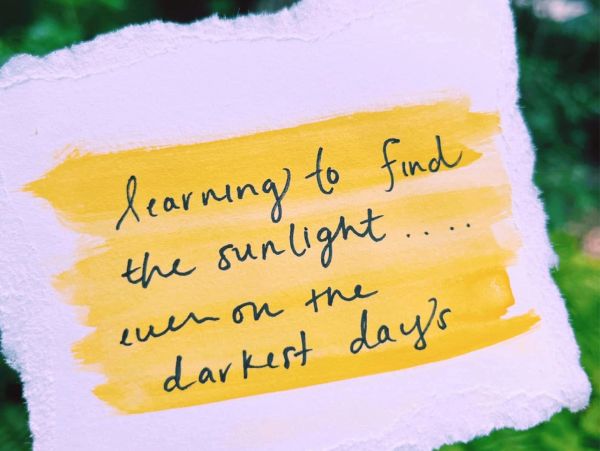 learning to find
the sunlight .....
even on the
darkest days